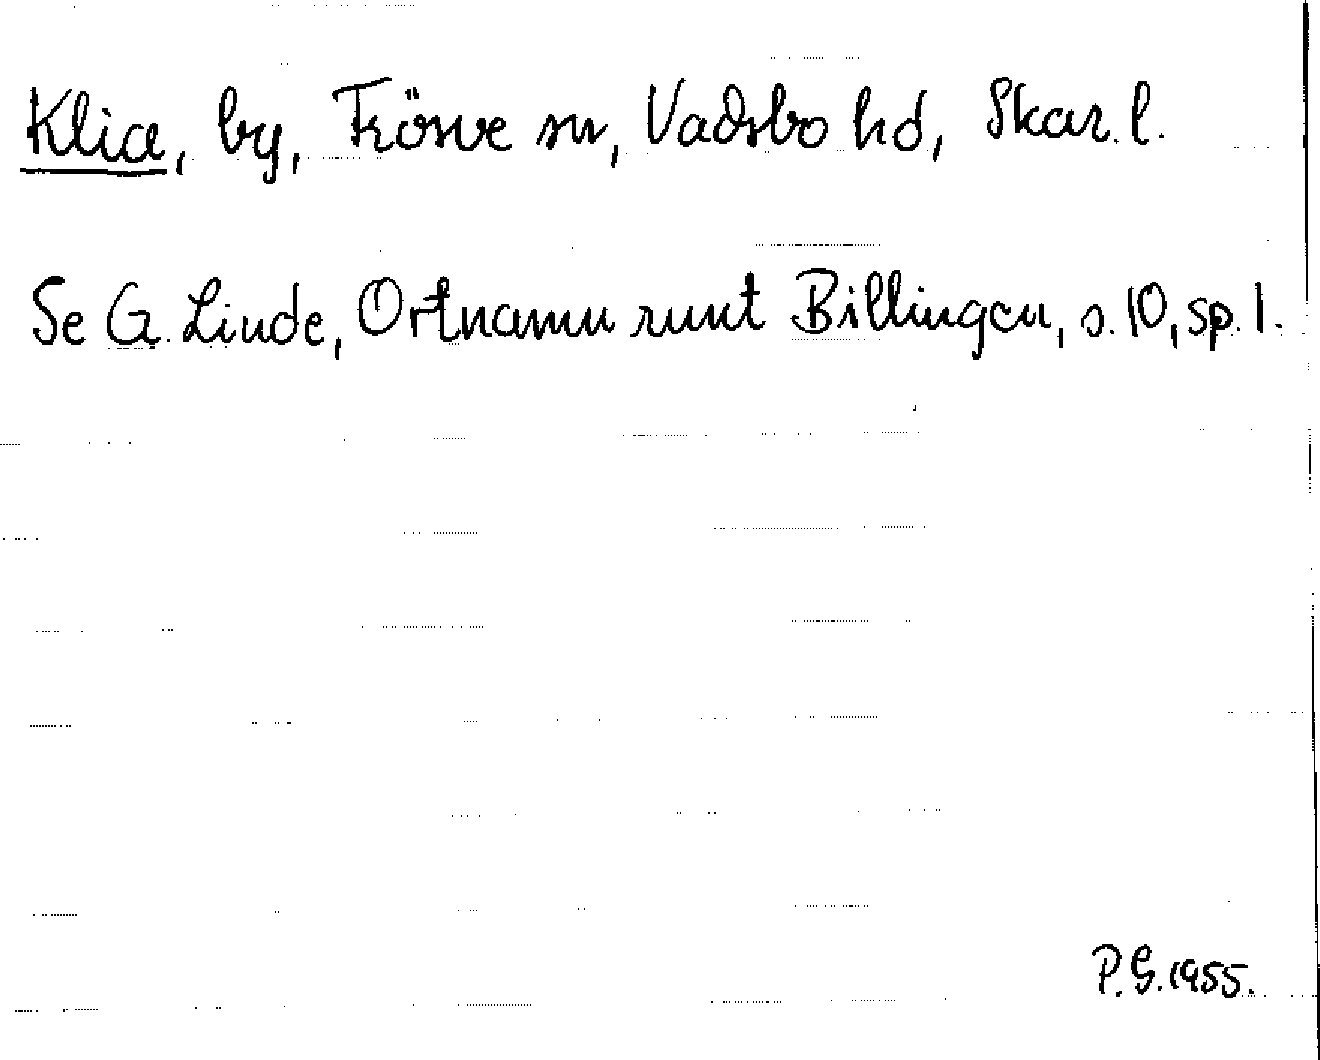 Klia, by, Frösve sn, Vadsbo hd, Skar. l.
Se G. Linde, Ortnamn runt Billingen, s. 10, sp. 1.
P.G. 1955.